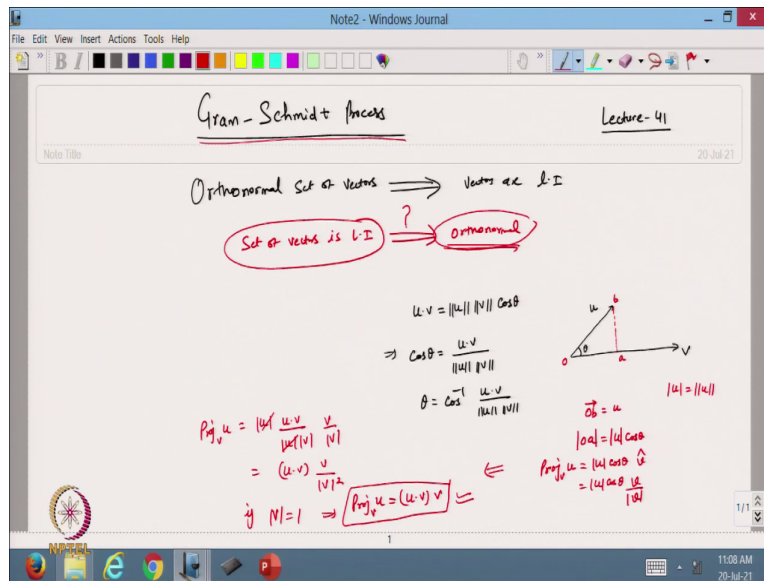 Note2 - Windows Journal
File Edit View Insert Actions Tools Help
B I
Gram-Schmidt Process
Lecture-41
Note Title
20-Jul-21
Orthonormal Set of Vectors ⟹ Vectors are l.I
Set of vectors is l.I ⟹ ? orthonormal
u.v = ||u|| ||v|| Cosθ
⇒ Cosθ = u.v / ||u|| ||v||
θ = Cos⁻¹ u.v / ||u|| ||v||
u b
θ
o a v
|u| = ||u||
ob = u
|oa| = |u| cosθ
Proj_v u = |u| cosθ v̂
= |u| cosθ v / |v|
⇐
Proj_v u = |u| u.v / |u||v| v / |v|
= (u.v) v / |v|²
if |v| = 1 ⇒ Proj_v u = (u.v) v
NPTEL
1/1
1
11:08 AM
20-Jul-21